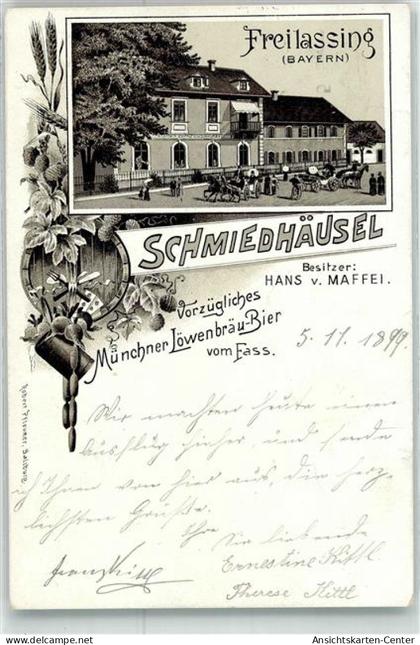 Freilassing
(BAYERN)
SCHMIEDHÄUSEL
Besitzer:
HANS v. MAFFEI.
Vorzügliches
Münchner Löwenbräu-Bier
vom Fass.
5. 11. 1899.
Wir machten heute einen
Ausflug hieher, und sende
ich Ihnen von hier aus, die herz-
lichsten Grüße.
Ihre Sie liebende
Ernestine Kittl
Therese Kittl
Ansichtskarten-Center